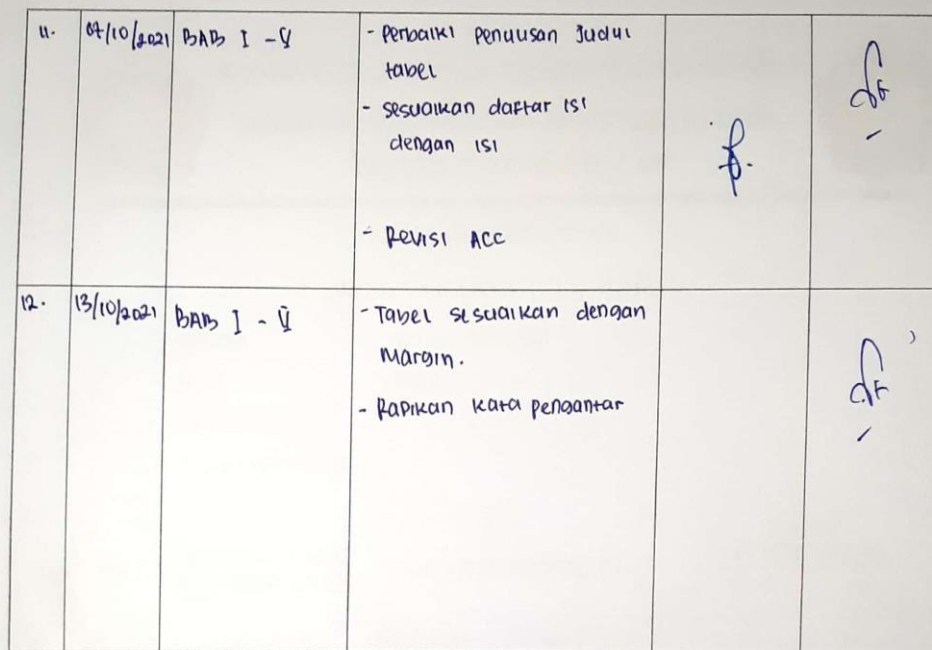 11. 07/10/2021 BAB I - V - Perbaiki penulisan Judul
tabel
- sesuaikan daftar isi
dengan isi
- Revisi ACC
12. 13/10/2021 BAB I - V - Tabel sesuaikan dengan
Margin.
- Rapikan kata pengantar